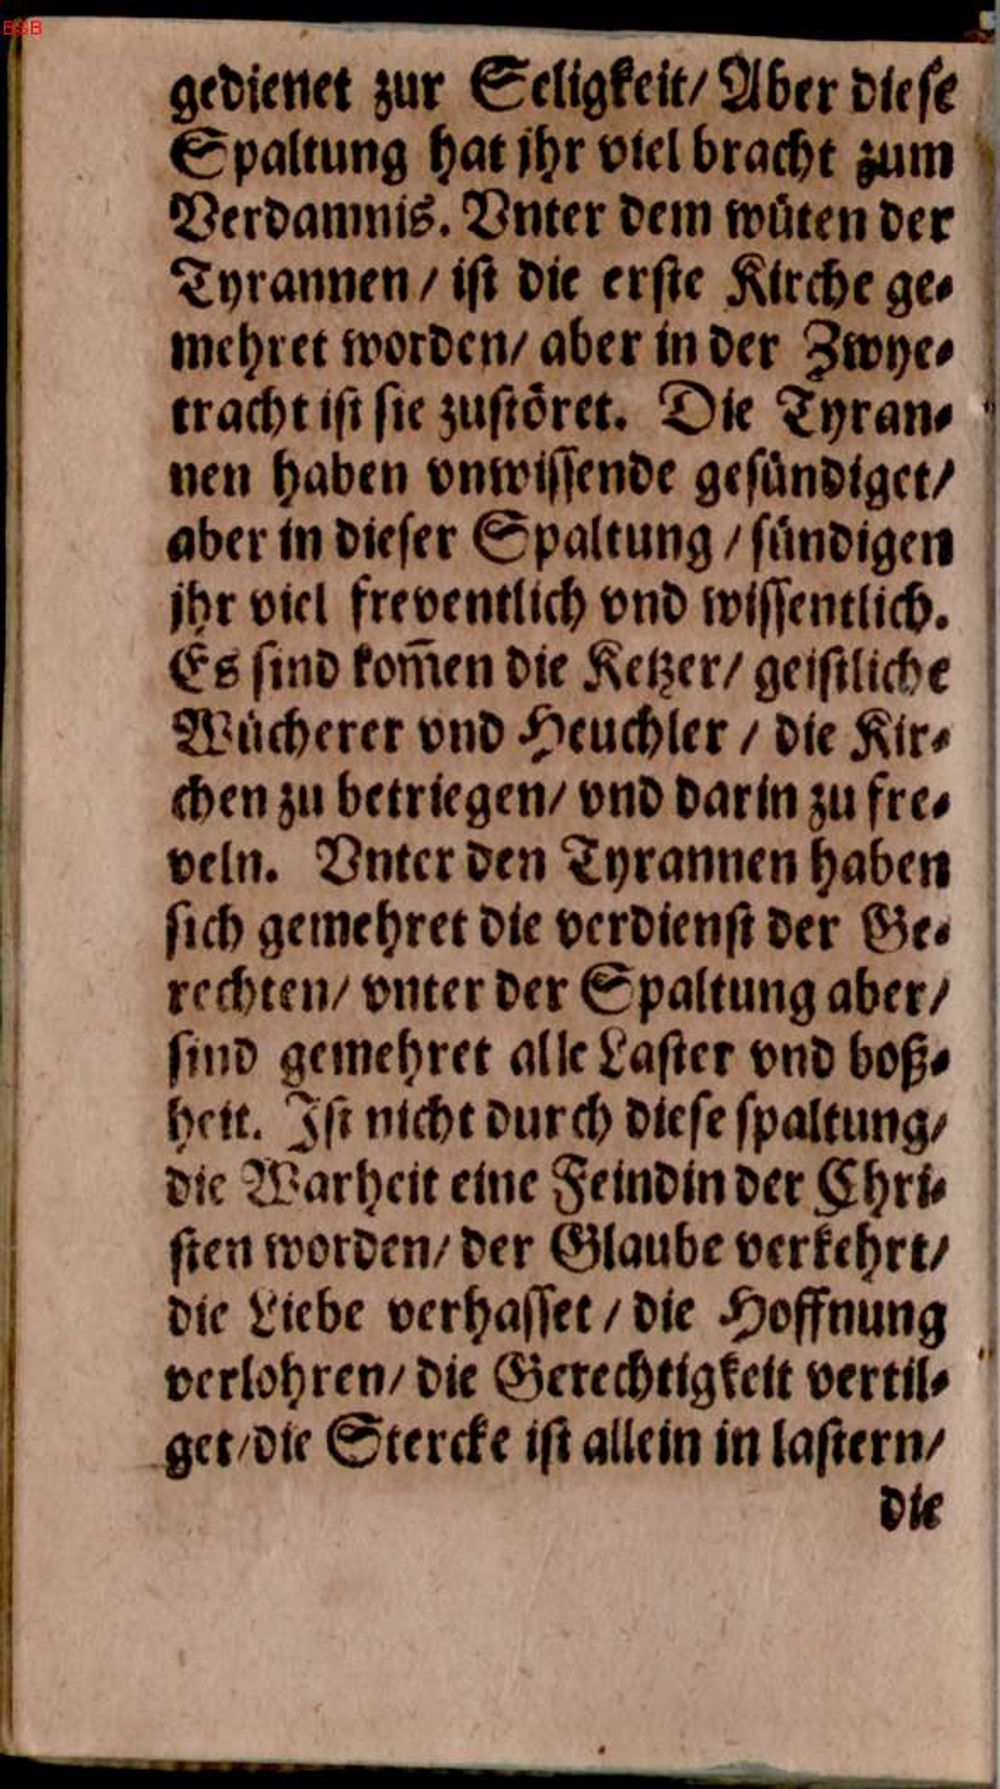 BSB
gedienet zur Seligkeit/ Aber diese
Spaltung hat jhr viel bracht zum
Verdamnis. Vnter dem wüten der
Tyrannen / ist die erste Kirche ge-
mehret worden/ aber in der Zwye-
tracht ist sie zustöret. Die Tyran-
nen haben vnwissende gesündiget/
aber in dieser Spaltung / sündigen
jhr viel freventlich vnd wissentlich.
Es sind kom̃en die Ketzer/ geistliche
Wücherer vnd Heuchler / die Kir-
chen zu betriegen/ vnd darin zu fre-
veln. Vnter den Tyrannen haben
sich gemehret die verdienst der Ge-
rechten/ vnter der Spaltung aber/
sind gemehret alle Laster vnd boß-
heit. Ist nicht durch diese spaltung/
die Warheit eine Feindin der Chri-
sten worden/ der Glaube verkehrt/
die Liebe verhasset / die Hoffnung
verlohren/ die Gerechtigkeit vertil-
get/ die Stercke ist allein in lastern/
die